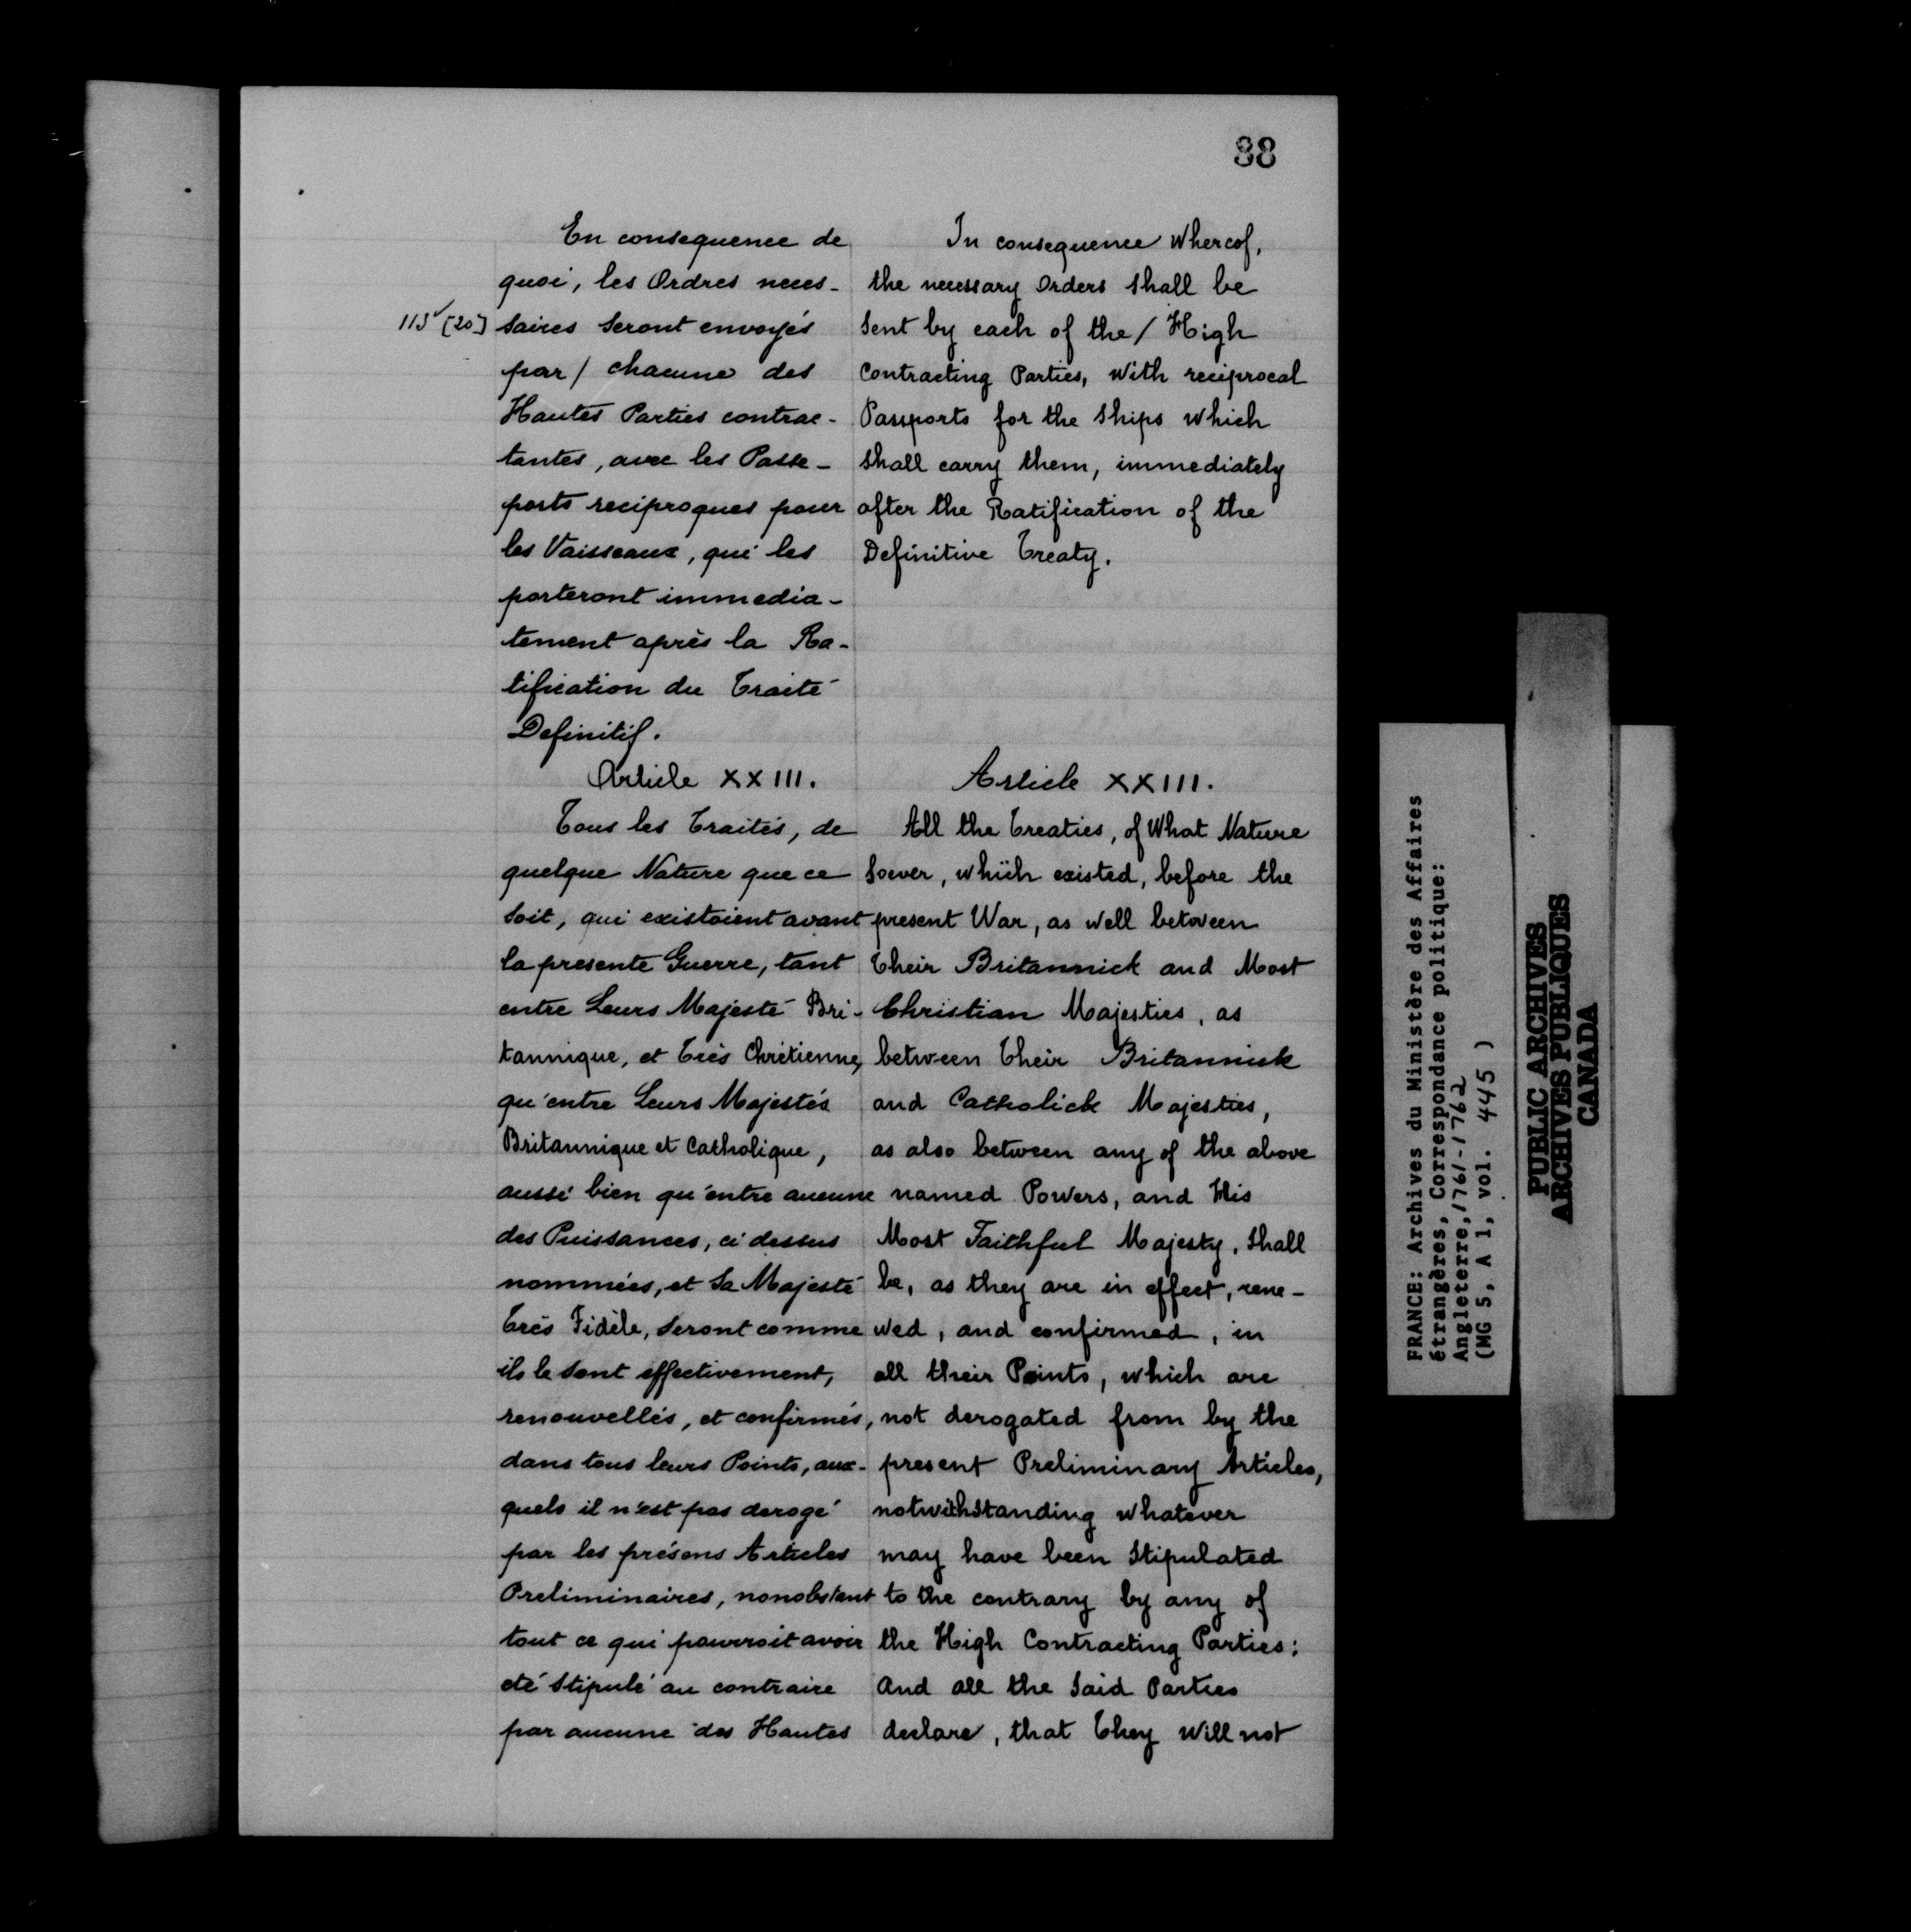 38
En consequence de
quoi, les Ordres neces-
113v [20] saires seront envoyés
par / chacune des
Hautes Parties contrac-
tantes, avec les Passe-
ports reciproques pour
les Vaisseaux, qui les
porteront immedia-
tement après la Ra-
tification du Traité
Definitif.
Article XXIII.
Tous les Traités, de
quelque Nature que ce
soit, qui existoient avant
la presente Guerre, tant
entre Leurs Majesté Bri-
tannique, et Très Chrétienne,
qu'entre Leurs Majestés
Britannique et Catholique,
aussi bien qu'entre aucune
des Puissances, ci dessus
nommées, et Sa Majesté
Très Fidèle, seront comme
ils le sont effectivement,
renouvellés, et confirmés,
dans tous leurs Points, aux-
quels il n'est pas derogé
par les présens Articles
Preliminaires, nonobstant
tout ce qui pourroit avoir
eté stipulé au contraire
par aucune des Hautes
In consequence Whereof,
the necessary Orders shall be
sent by each of the / High
Contracting Parties, With reciprocal
Passports for the Ships which
shall carry them, immediately
after the Ratification of the
Definitive Treaty.
Article XXIII.
All the Treaties, of What Nature
soever, which existed, before the
present War, as well between
Their Britannick and Most
Christian Majesties, as
between Their Britannick
and Catholick Majesties,
as also between any of the above
named Powers, and His
Most Faithful Majesty, shall
be, as they are in effect, rene-
wed, and confirmed, in
all their Points, which are
not derogated from by the
present Preliminary Articles,
notwithstanding whatever
may have been stipulated
to the contrary by any of
the High Contracting Parties:
And all the said Parties
declare, that They Will not
FRANCE: Archives du Ministère des Affaires
étrangères, Correspondance politique:
Angleterre, 1761-1762
(MG 5, A 1, vol. 445 )
PUBLIC ARCHIVES
ARCHIVES PUBLIQUES
CANADA